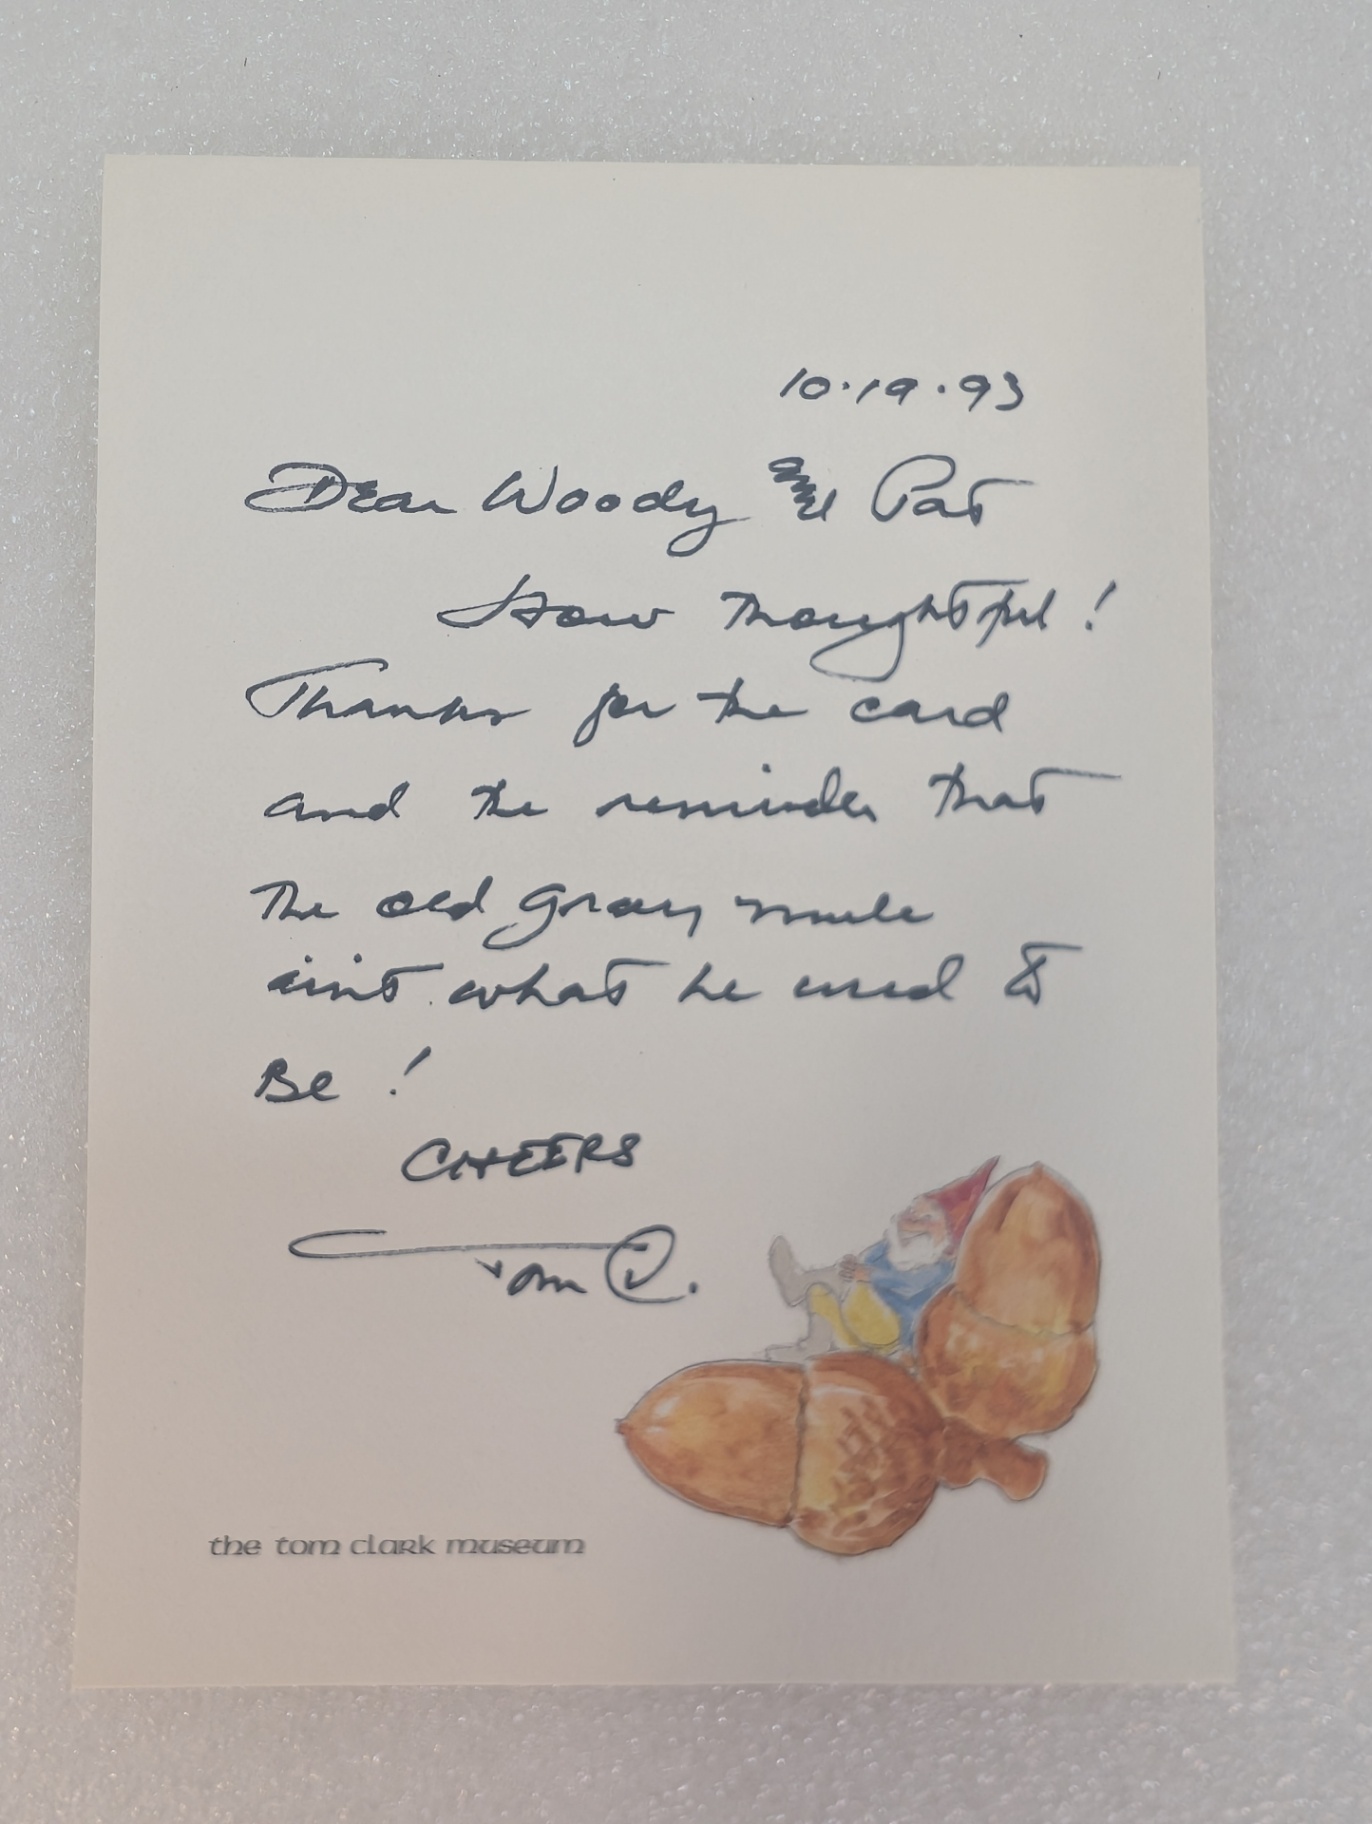 10·19·93
Dear Woody and Pat
How thoughtful!
Thanks for the card
and the reminder that
the old gray mule
ain't what he used to
Be!
CHEERS
Tom C.
the tom clark museum